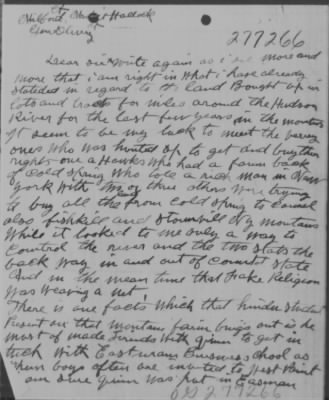 277266
Dear Sir Write again as i see more and
more that i am right in What i have already
stateded in regard to land Bought up in
lots and tracts for miles around the Hudson
River for the last few years on the mountains
it seem to be my luck to meet the verry
ones Who was hunted up to get and buy thier
rights one a Hanks Who had a farm back
of Cold Spring Who tole a rich man in New
york With two or three others Were trying
to buy all the from Cold Spring to Carmel
also fishkill and Stormvill Ny mountains
While it looked to me only a Way to
Control the river and the two States the
back Way in and out of Connett State
And in the mean time that Fake Religion
Was Weaving a net
There is one fact Which that hindu student
on that montan farm buys out is he
most of made friends With Ginn to get in
tuch With Eastmans Business School as
thier boys often are invited to West Point
am Sure Ginn Was put in Eastman
277266